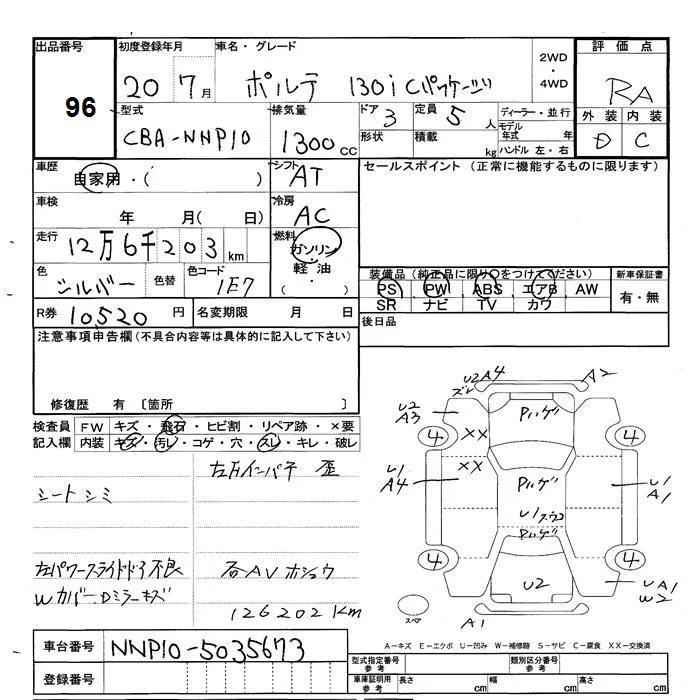 出品番号 初度登録年月 車名・グレード 評価点
96
20 7月 ポルテ 130i Cパッケージ 2WD・4WD RA
型式 排気量 ドア 3 定員 5人 ディーラー・並行
外装 内装
CBA-NNP10 1300cc 形状 積載 kg モデル年式 年 ハンドル 左・右 D C
車歴 自家用・( ) シフト AT セールスポイント (正常に機能するものに限ります)
車検 年 月( 日) 冷房 AC
走行 12万6千203km 燃料 ガソリン・軽油・( )
色 シルバー 色替 色コード 1E7
装備品(純正品に限り○をつけてください) 新車保証書
PS PW ABS エアB AW 有・無
SR ナビ TV カワ
R券 10520円 名変期限 月 日 後日品
注意事項申告欄(不具合内容等は具体的に記入して下さい)
修復歴 有 〔箇所 〕
検査員記入欄 FW キズ・飛石・ヒビ割・リペア跡・×要
内装 キズ・汚レ・コゲ・穴・スレ・キレ・破レ
左方インパネ 歪
シートシミ
左パワースライドドア不良 右AVホショウ
Wカバー、Dミラーキズ
126202Km
U2 A4 A2
ズレ
U2 A3 Pいげ
4 XX 4
XX
U1 A4 Pいげ U1 A1
U1
Pいげ
4 4
U2 UA1
W2
スペア A1
A-キズ E-エクボ U-凹み W-補修跡 S-サビ C-腐食 XX-交換済
車台番号 NNP10-5035673
登録番号
型式指定番号 参考 類別区分番号 参考
車庫証明用 参考 長さ cm 幅 cm 高さ cm